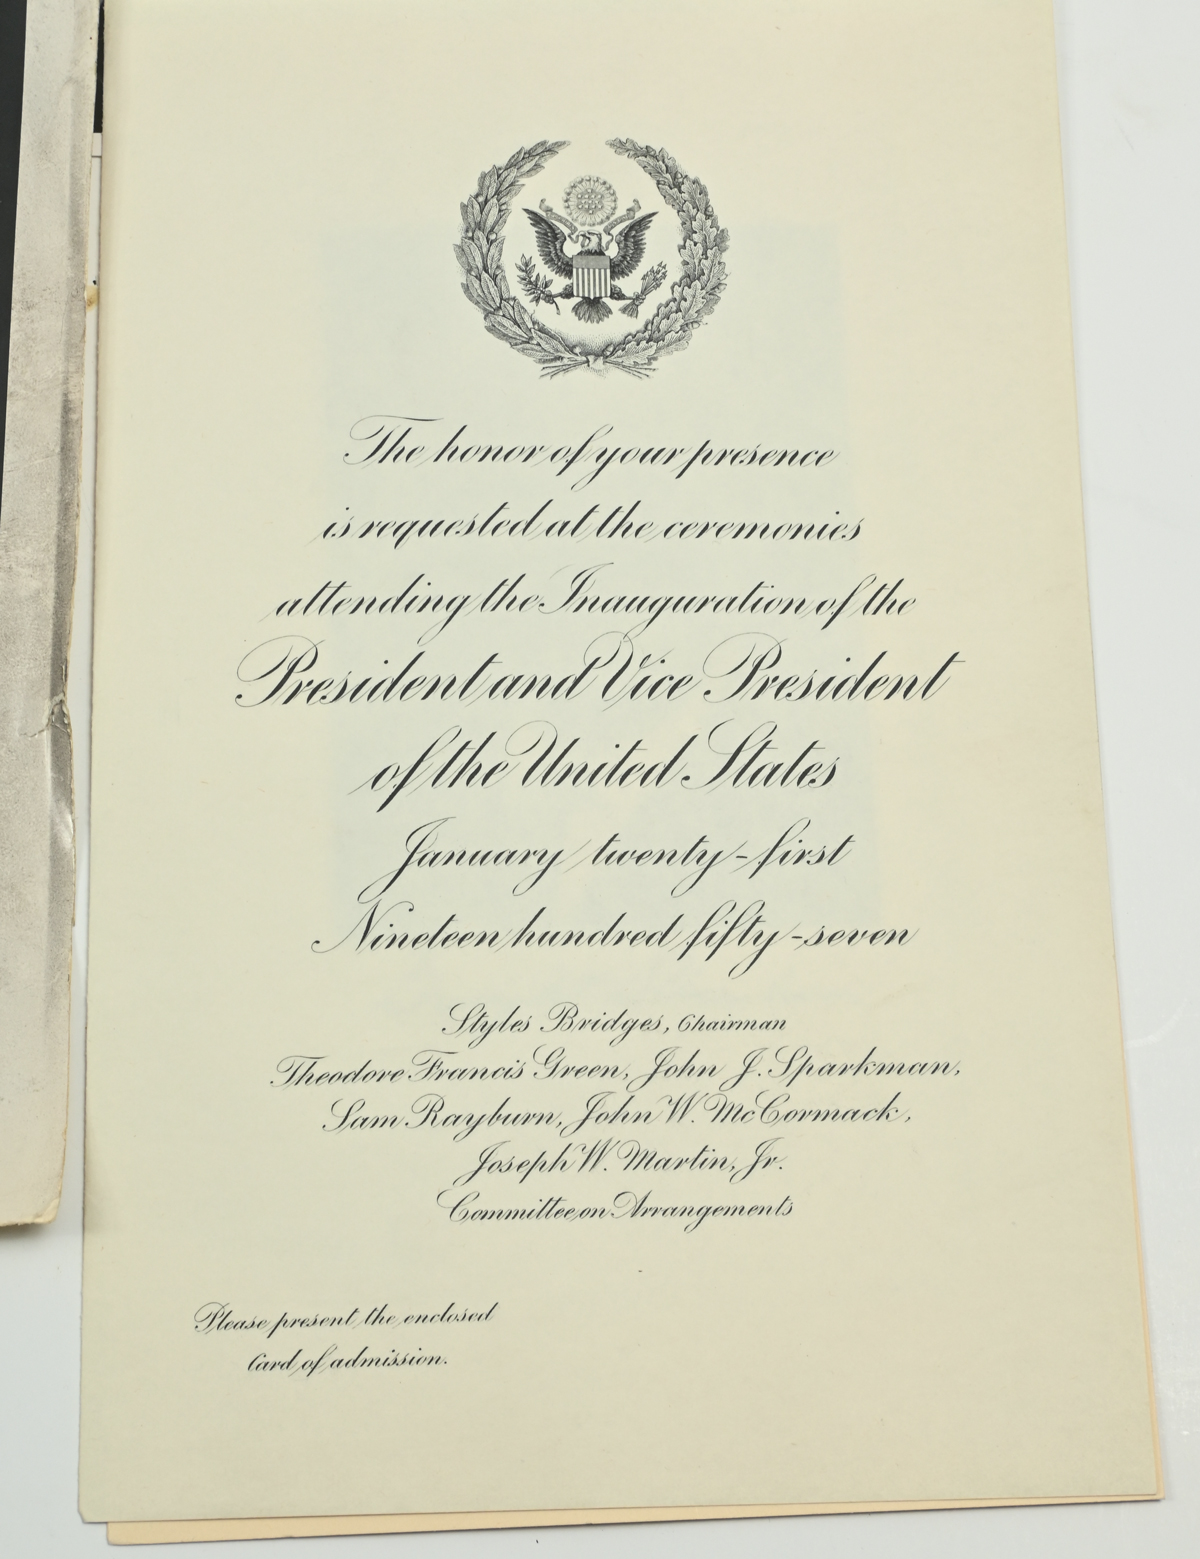 The honor of your presence
is requested at the ceremonies
attending the Inauguration of the
President and Vice President
of the United States
January twenty-first
Nineteen hundred fifty-seven
Styles Bridges, Chairman
Theodore Francis Green, John J. Sparkman,
Sam Rayburn, John W. McCormack,
Joseph W. Martin, Jr.
Committee on Arrangements
Please present the enclosed
Card of admission.